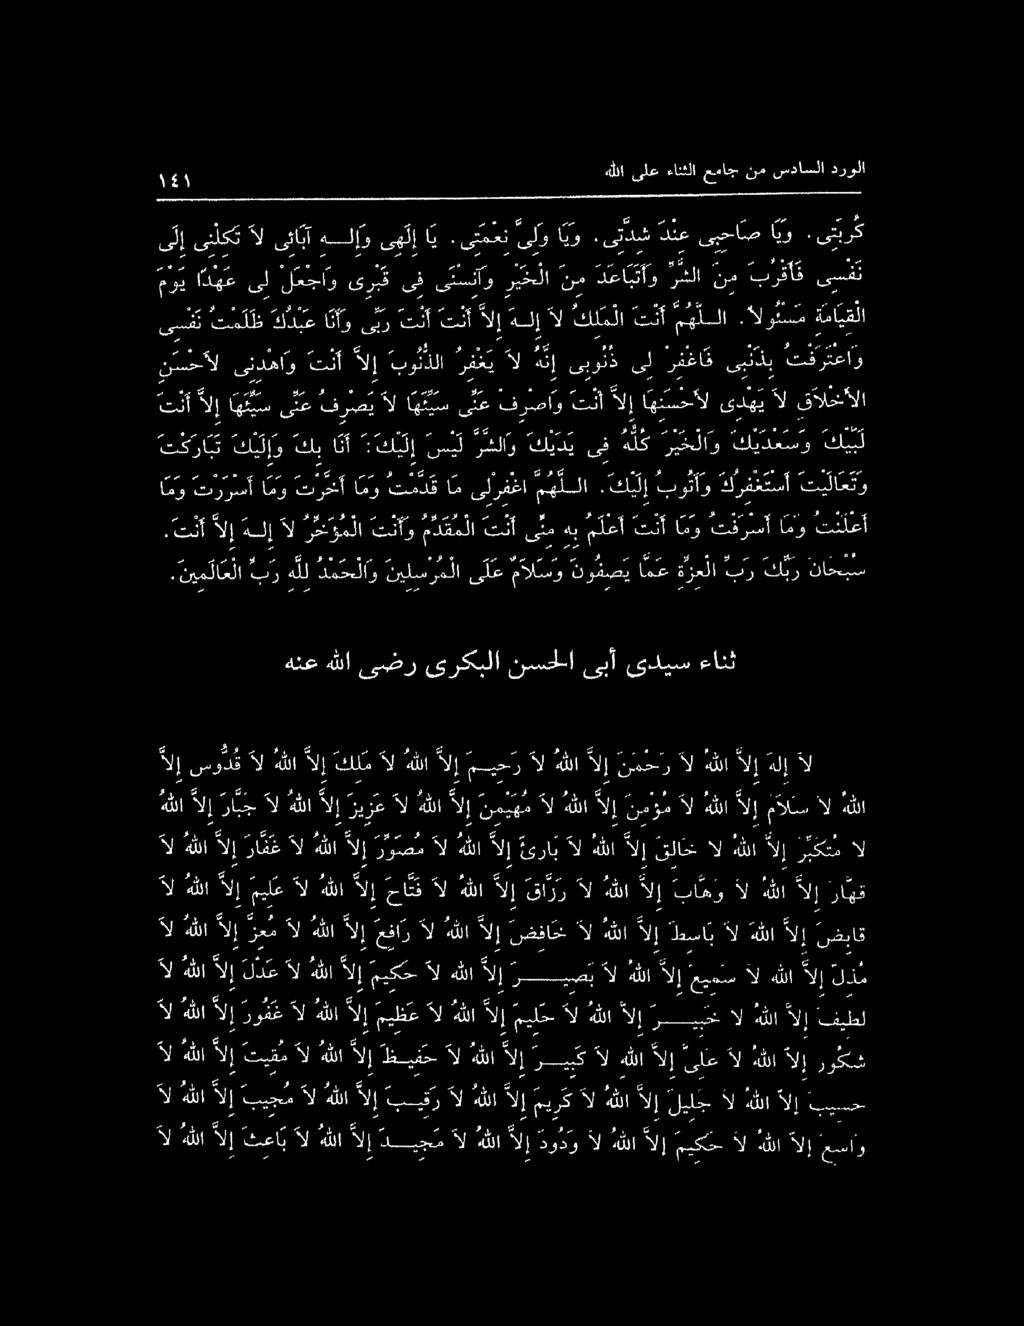 الورد السادس من جامع الثناء على الله ١٤١
كُرْبَتِى. وَيَا صَاحِبِى عِنْدَ شِدَّتِى. وَيَا وَلِىَّ نِعْمَتِى. يَا إِلَهِى وَإِلَـهِ آبَائِى لاَ تَكِلْنِى إِلَى
نَفْسِى فَأَقْرُبَ مِنَ الشَّرِّ وَأَتَبَاعَدَ مِنَ الْخَيْرِ وَآنِسْنِى فِى قَبْرِى وَاجْعَلْ لِى عَهْدًا يَوْمَ
الْقِيَامَةِ مَسْئُولاً. الـلَّهُمَّ أَنْتَ الْمَلِكُ لاَ إِلـهَ إِلاَّ أَنْتَ أَنْتَ رَبِّى وَأَنَا عَبْدُكَ ظَلَمْتُ نَفْسِى
وَاعْتَرَفْتُ بِذَنْبِى فَاغْفِرْ لِى ذُنُوبِى إِنَّهُ لاَ يَغْفِرُ الذُّنُوبَ إِلاَّ أَنْتَ وَاهْدِنِى لأَحْسَنِ
الأَخْلاَقِ لاَ يَهْدِى لأَحْسَنِهَا إِلاَّ أَنْتَ وَاصْرِفْ عَنِّى سَيِّئَهَا لاَ يَصْرِفُ عَنِّى سَيِّئَهَا إِلاَّ أَنْتَ
لَبَّيْكَ وَسَعْدَيْكَ وَالْخَيْرَ كُلُّهُ فِى يَدَيْكَ وَالشَّرُّ لَيْسَ إِلَيْكَ: أَنَا بِكَ وَإِلَيْكَ تَبَارَكْتَ
وَتَعَالَيْتَ أَسْتَغْفِرُكَ وَأَتُوبُ إِلَيْكَ. الـلَّهُمَّ اغْفِرْلِى مَا قَدَّمْتُ وَمَا أَخَّرْتُ وَمَا أَسْرَرْتُ وَمَا
أَعْلَنْتُ وَمَا أَسْرَفْتُ وَمَا أَنْتَ أَعْلَمُ بِهِ مِنِّى أَنْتَ الْمُقَدِّمُ وَأَنْتَ الْمُؤَخِّرُ لاَ إِلـهَ إِلاَّ أَنْتَ.
سُبْحَانَ رَبِّكَ رَبِّ الْعِزَّةِ عَمَّا يَصِفُونَ وَسَلاَمٌ عَلَى الْمُرْسَلِينَ وَالْحَمْدُ لِلَّهِ رَبِّ الْعَالَمِينَ.
ثناء سيدى أبى الحسن البكرى رضى الله عنه
لاَ إِلَهَ إِلاَّ اللهُ لاَ رَحْمَنَ إِلاَّ اللهُ لاَ رَحِيـمَ إِلاَّ اللهُ لاَ مَلِكَ إِلاَّ اللهُ لاَ قُدُّوسَ إِلاَّ
اللهُ لاَ سَلاَمَ إِلاَّ اللهُ لاَ مُؤْمِنَ إِلاَّ اللهُ لاَ مُهَيْمِنَ إِلاَّ اللهُ لاَ عَزِيزَ إِلاَّ اللهُ لاَ جَبَّارَ إِلاَّ اللهُ
لاَ مُتَكَبِّرَ إِلاَّ اللهُ لاَ خَالِقَ إِلاَّ اللهُ لاَ بَارِئَ إِلاَّ اللهُ لاَ مُصَوِّرَ إِلاَّ اللهُ لاَ غَفَّارَ إِلاَّ اللهُ لاَ
قَهَّارَ إِلاَّ اللهُ لاَ وَهَّابَ إِلاَّ اللهُ لاَ رَزَّاقَ إِلاَّ اللهُ لاَ فَتَّاحَ إِلاَّ اللهُ لاَ عَلِيمَ إِلاَّ اللهُ لاَ
قَابِضَ إِلاَّ اللهُ لاَ بَاسِطَ إِلاَّ اللهُ لاَ خَافِضَ إِلاَّ اللهُ لاَ رَافِعَ إِلاَّ اللهُ لاَ مُعِزَّ إِلاَّ اللهُ لاَ
مُذِلَّ إِلاَّ اللهُ لاَ سَمِيعَ إِلاَّ اللهُ لاَ بَصِيـرَ إِلاَّ اللهُ لاَ حَكِيمَ إِلاَّ اللهُ لاَ عَدْلَ إِلاَّ اللهُ لاَ
لَطِيفَ إِلاَّ اللهُ لاَ خَبِيـرَ إِلاَّ اللهُ لاَ حَلِيمَ إِلاَّ اللهُ لاَ عَظِيمَ إِلاَّ اللهُ لاَ غَفُورَ إِلاَّ اللهُ لاَ
شَكُورَ إِلاَّ اللهُ لاَ عَلِىَّ إِلاَّ اللهُ لاَ كَبِيـرَ إِلاَّ اللهُ لاَ حَفِيـظَ إِلاَّ اللهُ لاَ مُقِيتَ إِلاَّ اللهُ لاَ
حَسِيبَ إِلاَّ اللهُ لاَ جَلِيلَ إِلاَّ اللهُ لاَ كَرِيمَ إِلاَّ اللهُ لاَ رَقِيـبَ إِلاَّ اللهُ لاَ مُجِيبَ إِلاَّ اللهُ لاَ
وَاسِعَ إِلاَّ اللهُ لاَ حَكِيمَ إِلاَّ اللهُ لاَ وَدُودَ إِلاَّ اللهُ لاَ مَجِيـدَ إِلاَّ اللهُ لاَ بَاعِثَ إِلاَّ اللهُ لاَ